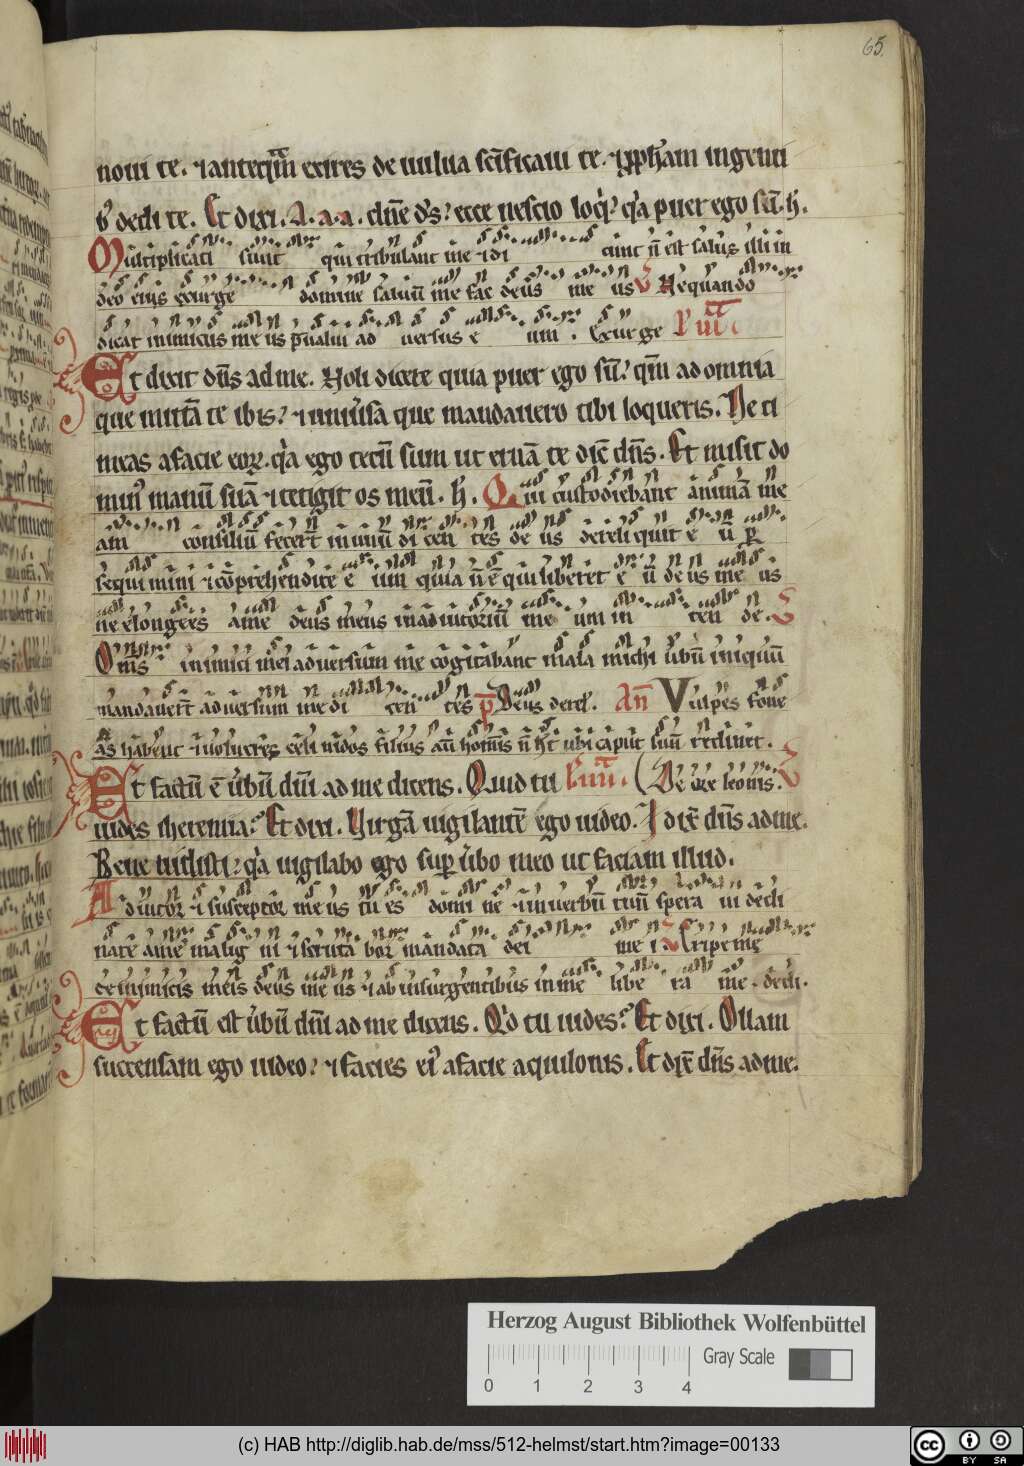 65
noui te. ⁊ anteq̄m exires de uulua sc̄ificaui te. ⁊ ꝓph̄am in genti
b᷒ dedi te. Et dixi. A. a. a. dn̄e d̄s? ecce nescio loq̇. q̇a puer ego sū. h.
Multiplicati sunt qui tribulant me ⁊ di cunt n̄ est salus illi in
deo eius exurge domine saluū me fac deus me us V Nequando
dicat inimicus me us p̄ualui ad uersus e um . Exurge
Et dixit dn̄s ad me. Noli dicere quia puer ego sū? qm̄ ad omnia
que mittā te ibis? ⁊ uniu̾sa que mandauero tibi loqueris. Ne ti
meas a facie eoꝝ. q̇a ego tecū sum ut eruā te dic̄ dn̄s. Et misit do
min᷒ manū suā ⁊ tetigit os meū. h. Qui custodiebant animā me
am consiliū fecer̄t in unū di cen tes de us dereliquit e ū ꝑ
sequimini ⁊ cōprehendite e um quia n̄ ē qui liberet e ū de us me us
ne elongeris a me deus meus in adiutoriū me um in ten de. V
Om̄s inimici mei aduersum me cogitabant mala michi uerbū iniquū
mandauer̄t aduersum me di cen tes p Deus derel̄. An̄ Vulpes foue
as habent ⁊ uolucres celi nidos filius au̅ homis n̄ h̄t ubi caput suū reclinet.
Et factū ē u̾bū dn̄i ad me dicens. Quid tu De ore leonis. V
uides iheremia? Et dixi. Uirgā uigilantē ego uideo. I dix̄ dn̄s ad me.
Bene uidisti? q̇a uigilabo ego suꝑ u̾bo meo ut faciam illud.
Adiutor ⁊ susceptor me us tu es domi ne ⁊ in uerbū tuū spera ui decli
nate a me malig ni ⁊ scruta bor mandata dei me i V Eripe me
de inimicis meis deus me us ⁊ ab insurgentibus in me libe ra me. decli.
Et factū est u̾bū dn̄i ad me dicens. Qd̄ tu uides? Et dixi. Ollam
succensam ego uideo? ⁊ facies ei᷒ a facie aquilonis. Et dix̄ dn̄s ad me.
Herzog August Bibliothek Wolfenbüttel
Gray Scale
0 1 2 3 4
(c) HAB http://diglib.hab.de/mss/512-helmst/start.htm?image=00133
cc BY SA